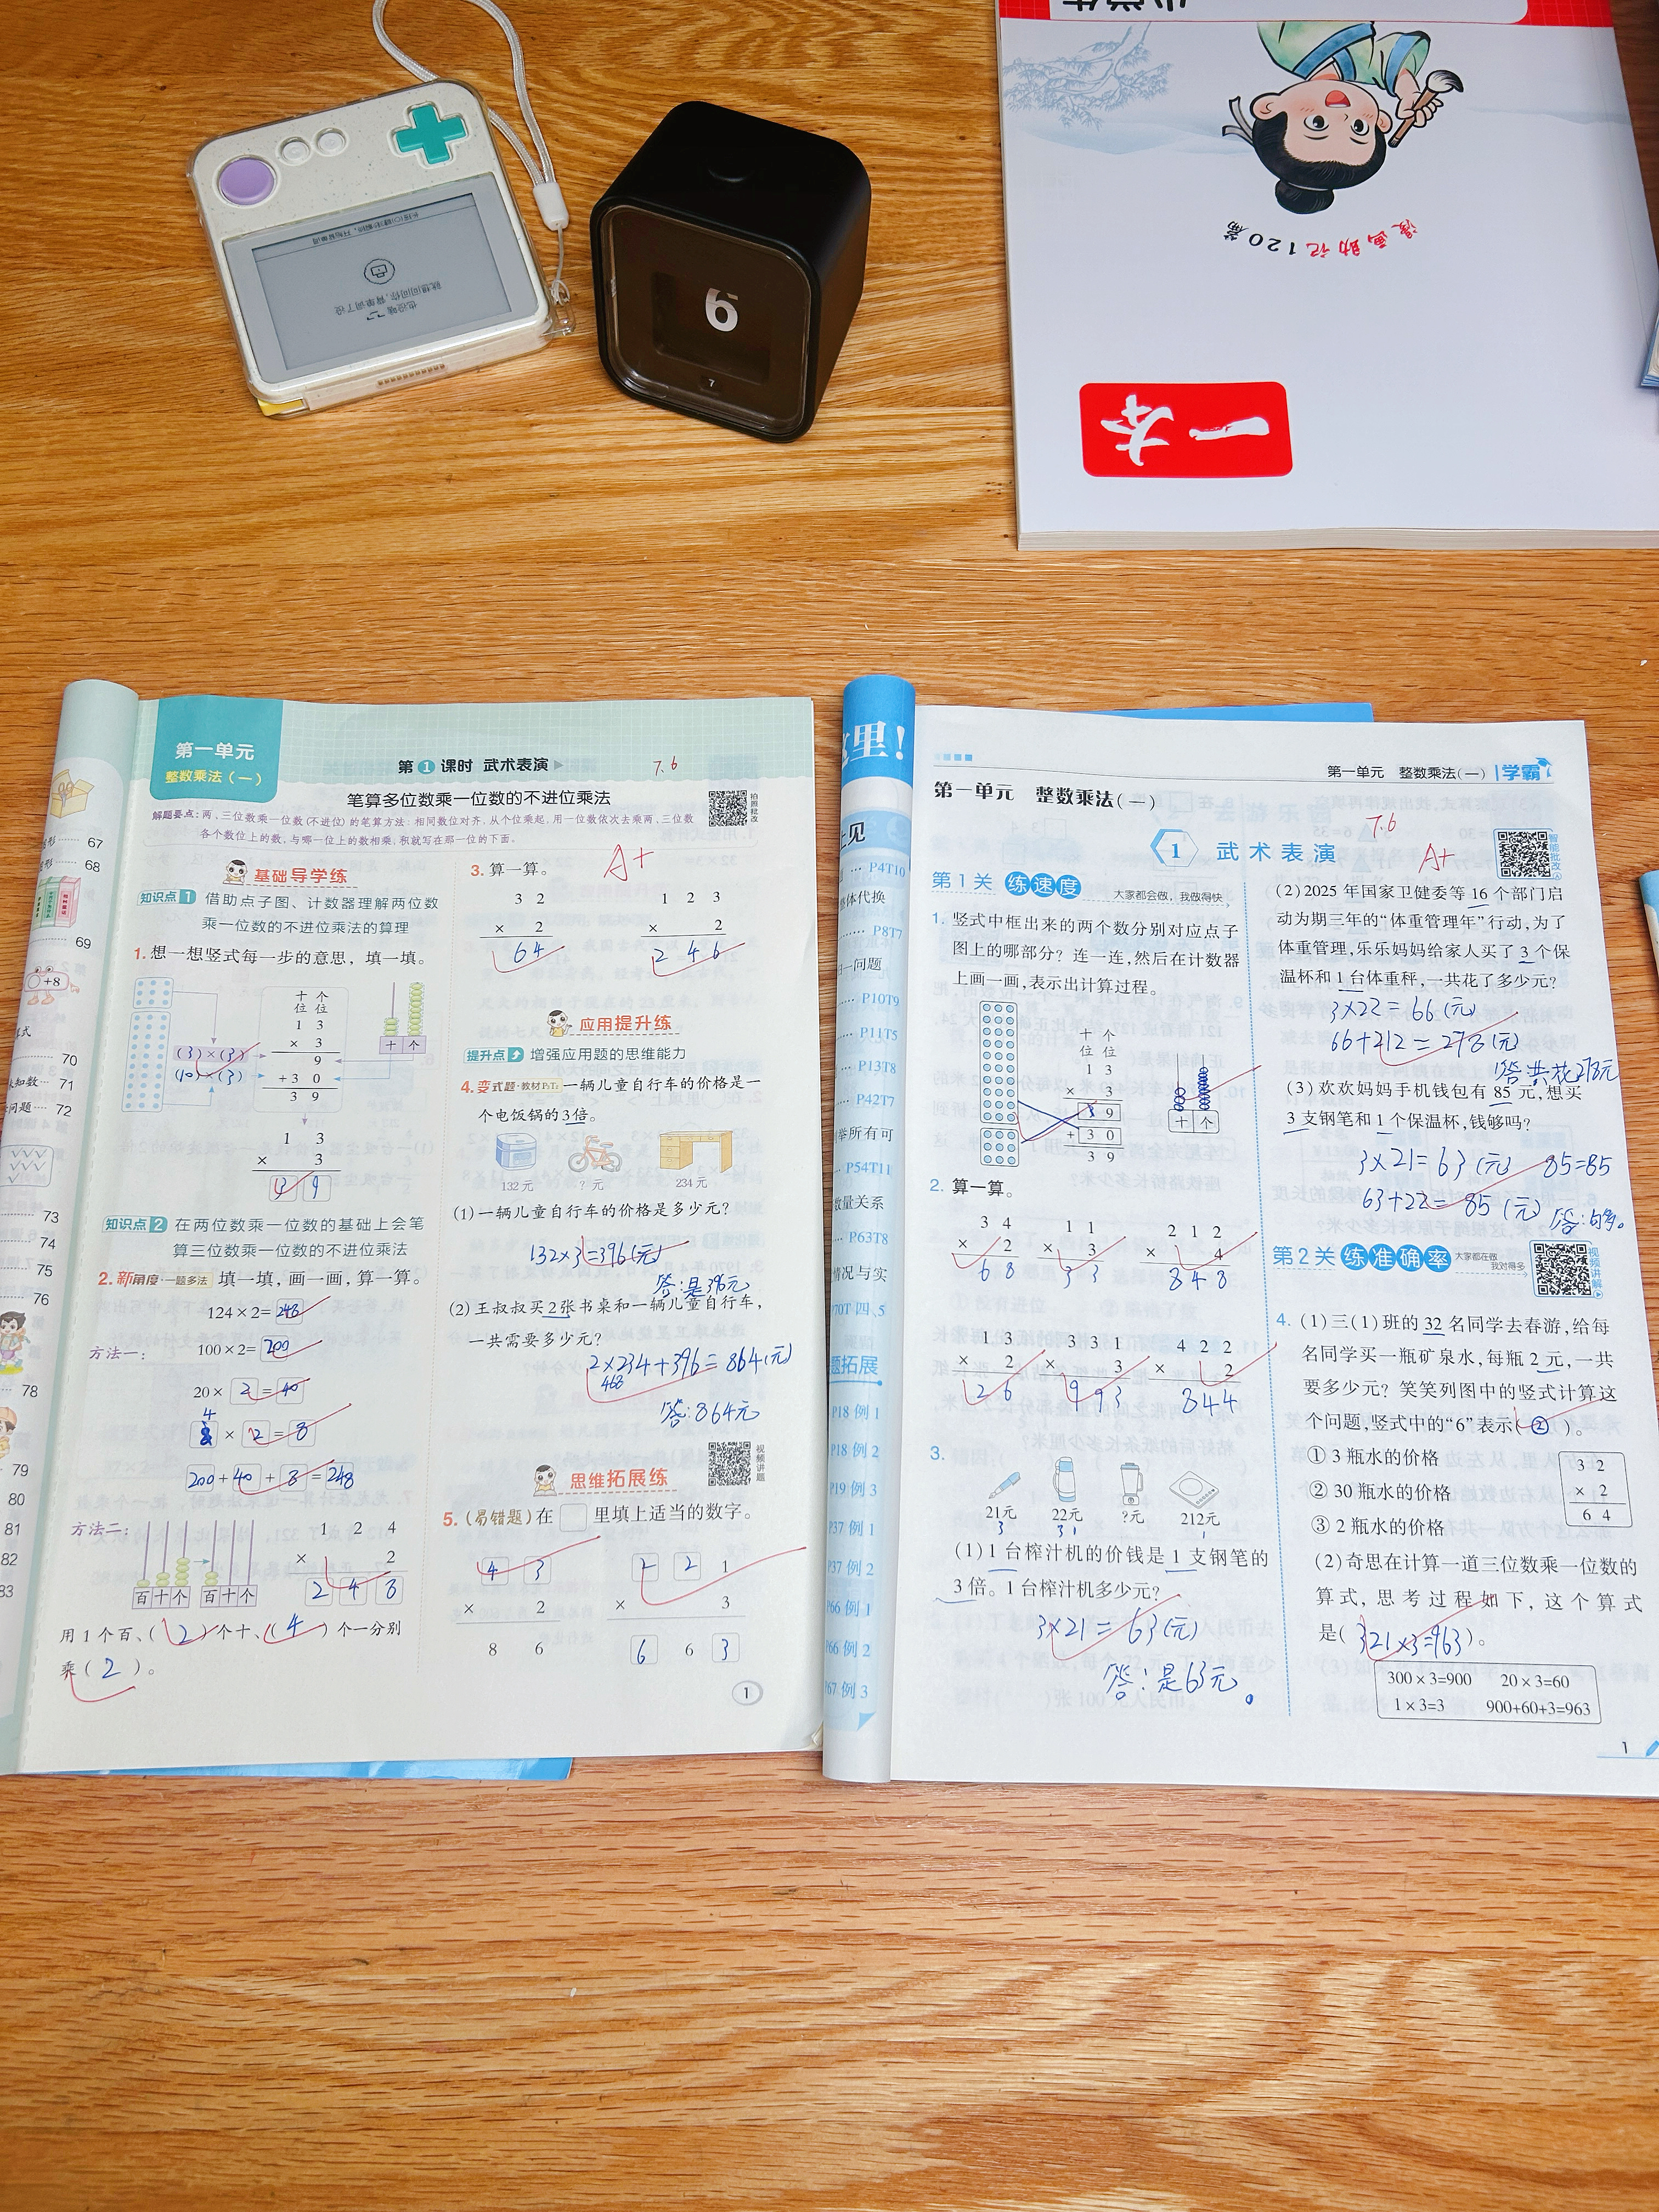 6
7
漫画助记120篇
一本
67
68
69
70
71
72
73
74
75
76
78
79
80
81
82
83
第一单元
整数乘法(一)
第1课时 武术表演
7.6
笔算多位数乘一位数的不进位乘法
解题要点:两、三位数乘一位数(不进位)的笔算方法:相同数位对齐,从个位乘起,用一位数依次去乘两、三位数
各个数位上的数,与哪一位上的数相乘,积就写在那一位的下面。
拍照批改
基础导学练
知识点1 借助点子图、计数器理解两位数
乘一位数的不进位乘法的算理
1.想一想竖式每一步的意思,填一填。
十 个
位 位
1 3
× 3
(3)×(3) 9
(10)×(3) +3 0
3 9
十 个
1 3
× 3
3 9
知识点2 在两位数乘一位数的基础上会笔
算三位数乘一位数的不进位乘法
2.新角度·一题多法 填一填,画一画,算一算。
124×2=248
方法一: 100×2=200
20×2=40
4×2=8
200+40+8=248
方法二:
百 十 个 百 十 个
1 2 4
× 2
2 4 8
用1个百、(2)个十、(4)个一分别
乘(2)。
3.算一算。
A+
3 2 1 2 3
× 2 × 2
6 4 2 4 6
应用提升练
提升点 增强应用题的思维能力
4.变式题·教材P₂T₂ 一辆儿童自行车的价格是一
个电饭锅的3倍。
132元 ?元 234元
(1)一辆儿童自行车的价格是多少元?
132×3=396(元)
答:是396元
(2)王叔叔买2张书桌和一辆儿童自行车,
一共需要多少元?
2×234+396=864(元)
468
答:864元
思维拓展练
视频讲题
5.(易错题)在□里填上适当的数字。
4 3 2 2 1
× 2 × 3
8 6 6 6 3
1
这里!
上见
P4T10
体代换
P8T7
问题
P10T9
P11T5
P13T8
P42T7
举所有可
P54T11
数量关系
P63T8
情况与实
P70T 四、5
题拓展
P18 例1
P18 例2
P19 例3
P37 例1
P37 例2
P66 例1
P66 例2
P67 例3
第一单元 整数乘法(一) 学霸
第一单元 整数乘法(一)
7.6
1 武术表演
A+
智能批改
第1关 练速度 大家都会做,我做得快
1. 竖式中框出来的两个数分别对应点子
图上的哪部分?连一连,然后在计数器
上画一画,表示出计算过程。
十 个
位 位
1 3
× 3
9
+3 0
3 9
十 个
2. 算一算。
3 4 1 1 2 1 2
× 2 × 3 × 4
6 8 3 3 8 4 8
1 3 3 3 1 4 2 2
× 2 × 3 × 2
2 6 9 9 3 8 4 4
3.
21元 22元 ?元 212元
3 3 1 1
(1)1台榨汁机的价钱是1支钢笔的
3倍。1台榨汁机多少元?
3×21=63(元)
答:是63元。
(2)2025年国家卫健委等16个部门启
动为期三年的“体重管理年”行动,为了
体重管理,乐乐妈妈给家人买了3个保
温杯和1台体重秤,一共花了多少元?
3×22=66(元)
66+212=278(元)
答:共花278元
(3)欢欢妈妈手机钱包有85元,想买
3支钢笔和1个保温杯,钱够吗?
3×21=63(元) 85=85
63+22=85(元)
答:够。
第2关 练准确率 大家都在做
我对得多
视频讲解
4. (1)三(1)班的32名同学去春游,给每
名同学买一瓶矿泉水,每瓶2元,一共
要多少元?笑笑列图中的竖式计算这
个问题,竖式中的“6”表示(②)。
①3瓶水的价格
②30瓶水的价格
③2瓶水的价格
3 2
× 2
6 4
(2)奇思在计算一道三位数乘一位数的
算式,思考过程如下,这个算式
是(321×3=963)。
300×3=900 20×3=60
1×3=3 900+60+3=963
1